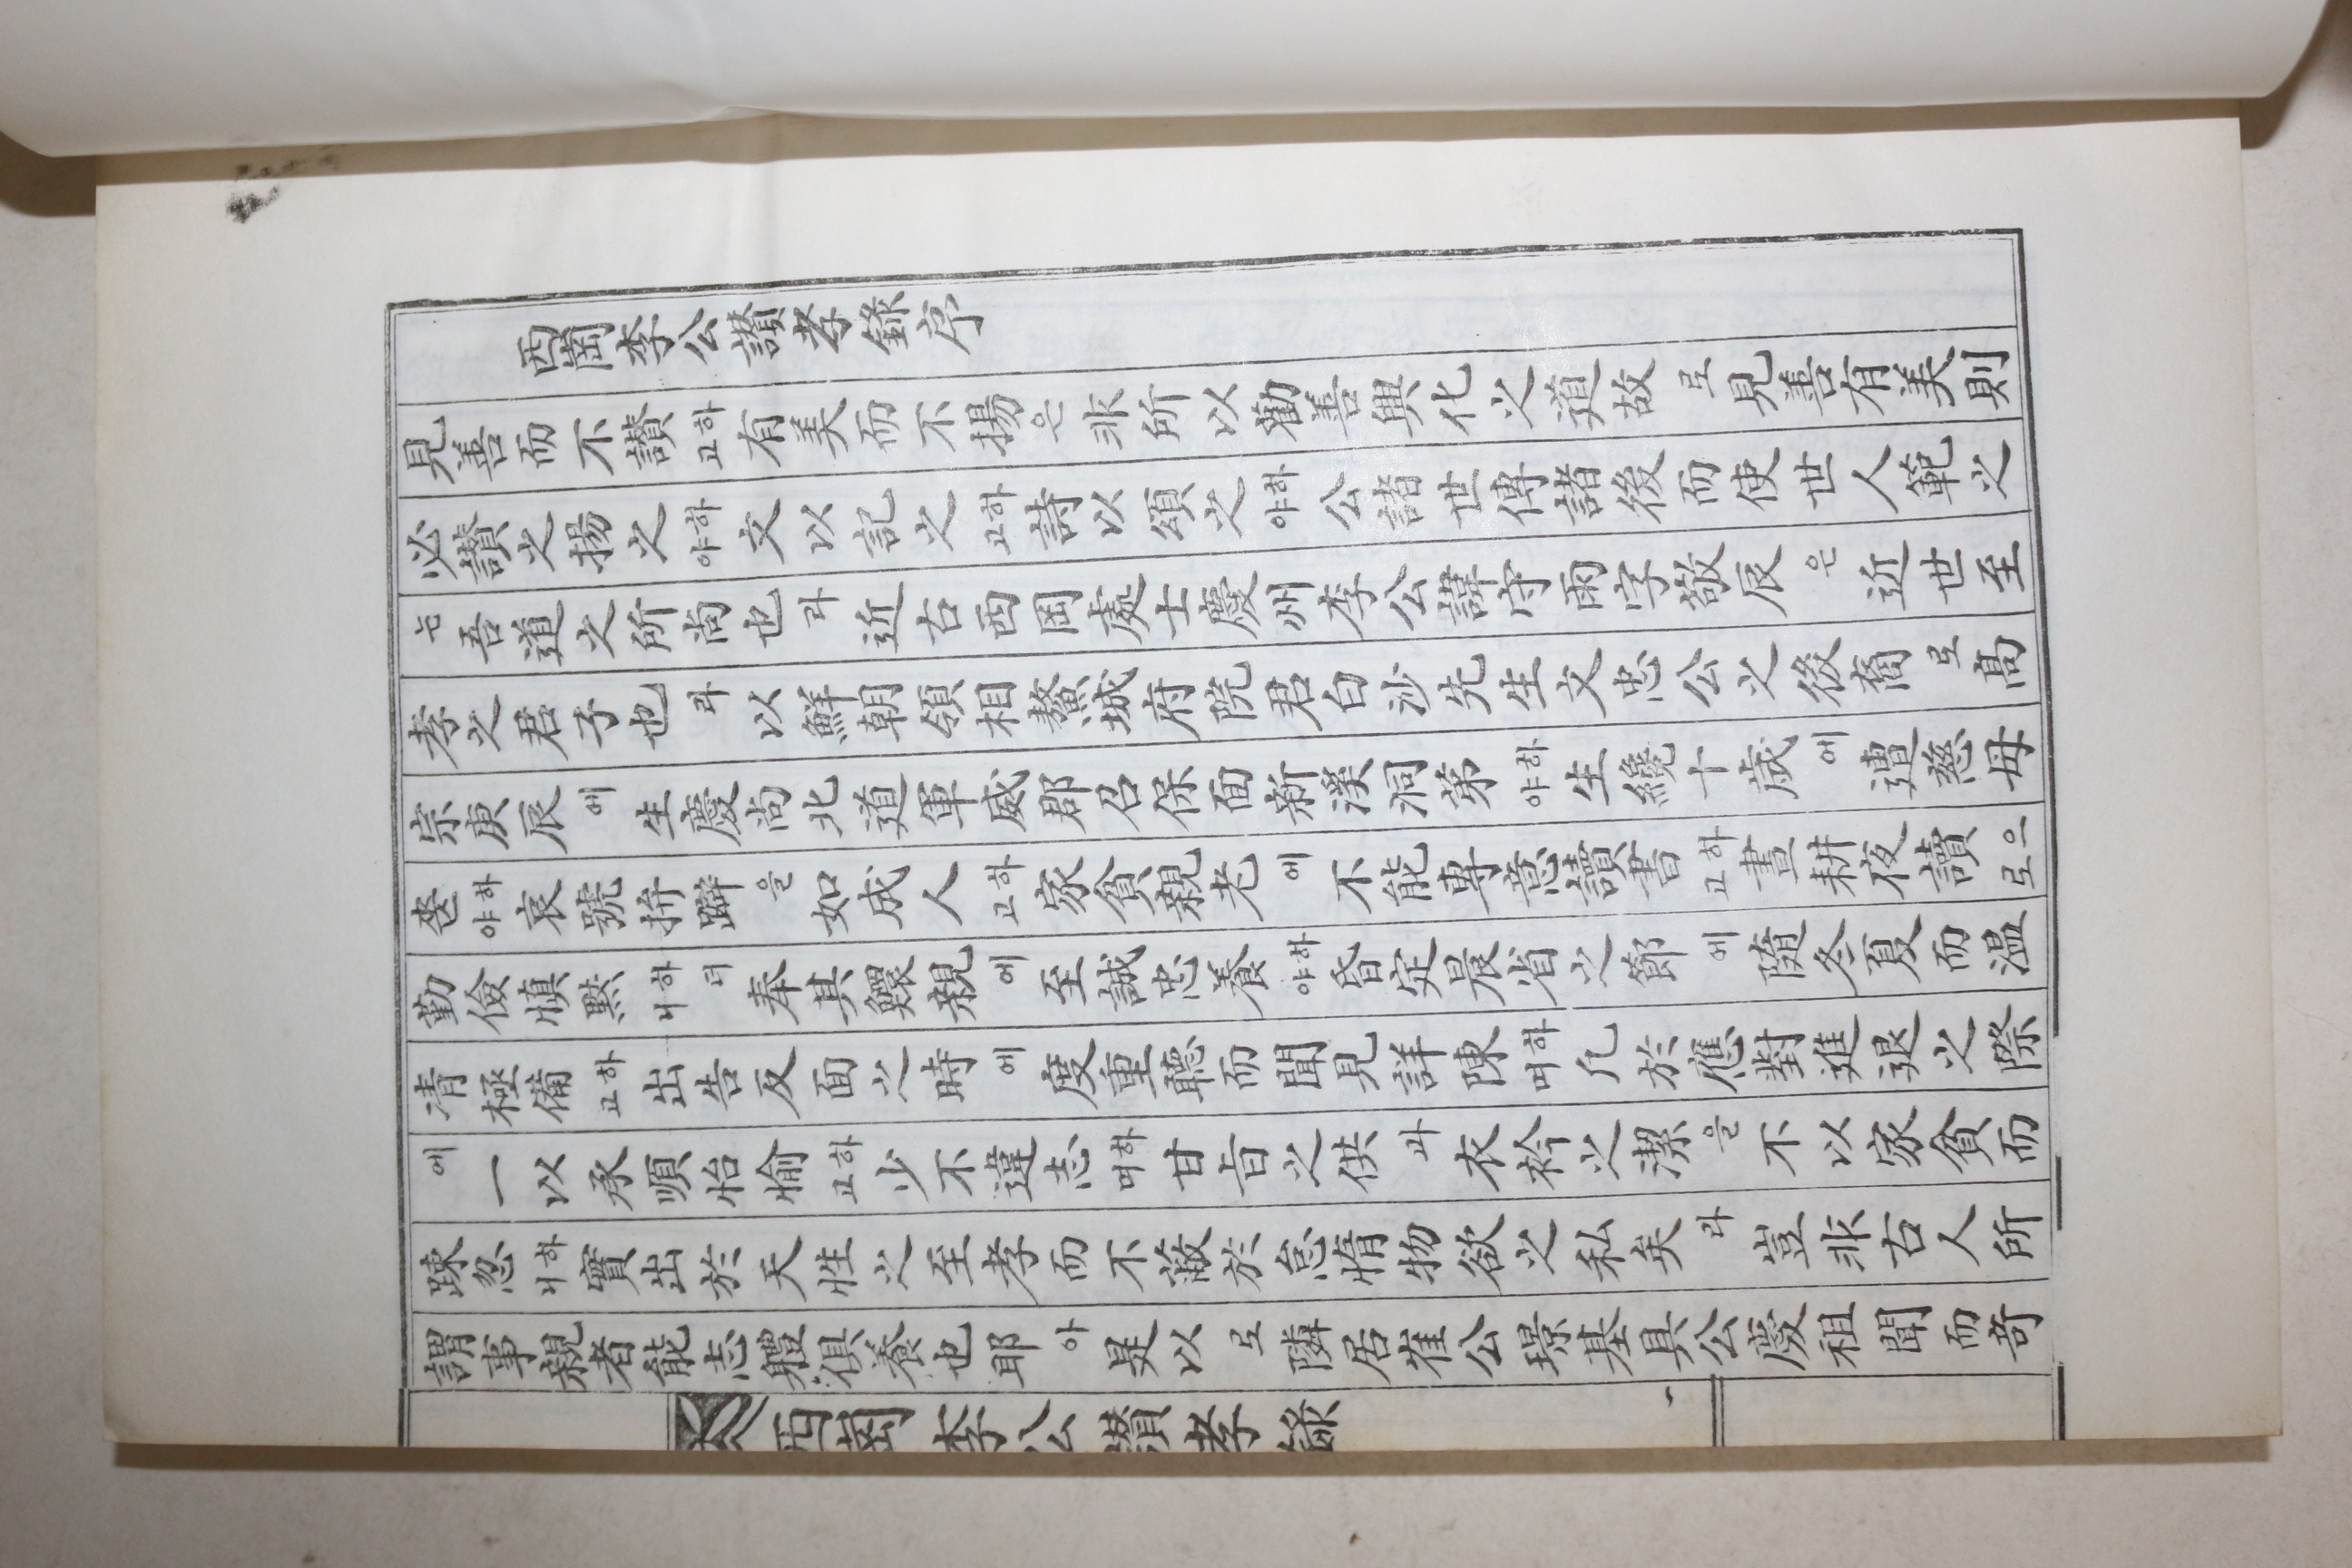 西崗李公讃孝錄序
見善而不讃하고有美而不揚은非所以勸善興化之道故로見善有美則
必讃之揚之하야文以記之하고詩以頌之하야公諸世傳諸後而使世人範之
는吾道之所尚也라近古西岡處士慶州李公諱守雨字敬辰은近世至
孝之君子也라以鮮朝領相鰲城府院君白沙先生文忠公之後裔로高
宗庚辰에生慶尚北道軍威郡召保面新溪洞第하야生纔十歲에遭慈母
喪하야哀號拚躃을如成人하고家貧親老에不能專意讀書하고晝耕夜讀으로
勤儉慎黙하더니奉其鰥親에至誠忠養하야昏定晨省之節에隨冬夏而温
凊極備하고出告反面之時에度重聽而聞見詳陳하며凡於應對進退之際
에一以承順怡愉하고少不違志하며甘旨之供과衣衿之潔을不以家貧而
踈忽하니實出於天性之至孝而不蔽於怠惰物欲之私矣라豈非古人所
謂事親者能志軆俱養也耶아是以로隣居崔公璟基具公慶祖聞而奇
西崗李公讃孝錄 一